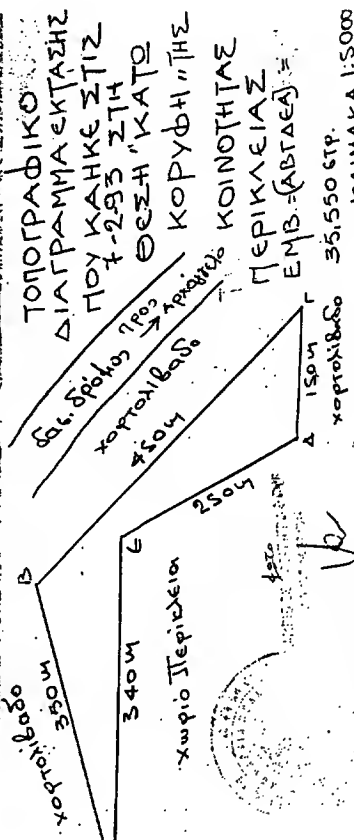 ΤΟΠΟΓΡΑΦΙΚΟ
ΔΙΑΓΡΑΜΜΑ ΕΚΤΑΣΗΣ
ΠΟΥ ΚΑΗΚΕ ΣΤΙΣ
7-2-93 ΣΤΗ
ΘΕΣΗ "ΚΑΤΩ
ΚΟΡΥΦΗ" ΤΗΣ
ΚΟΙΝΟΤΗΤΑΣ
ΠΕΡΙΚΛΕΙΑΣ
ΕΜΒ.=(ΑΒΓΔΕΑ)=
35,550 στρ.
1:5000
προς
δασ. δρόμος → Αρχάγγελο
χορτολίβαδο
450μ
Β
χορτολίβαδο
350μ
Γ
150μ
Δ
χορτολίβαδο
250μ
Ε
340μ
χωριό Περίκλεια